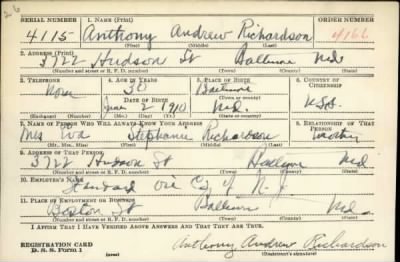 SERIAL NUMBER 1. NAME (Print) ORDER NUMBER
4115 Anthony Andrew Richardson 4166
(First) (Middle) (Last)
2. ADDRESS (Print)
3722 Hudson St Md.
(Number and street or R. F. D. number) (Town) (County) (State)
3. TELEPHONE 4. AGE IN YEARS 5. PLACE OF BIRTH 6. COUNTRY OF CITIZENSHIP
None 30 Baltimore
DATE OF BIRTH (Town or county)
June 2 1910 Md. U.S.A.
(Exchange) (Number) (Mo.) (Day) (Yr.) (State or country)
7. NAME OF PERSON WHO WILL ALWAYS KNOW YOUR ADDRESS 8. RELATIONSHIP OF THAT PERSON
Mrs Stephanie Richardson Mother
(Mr., Mrs., Miss) (First) (Middle) (Last)
9. ADDRESS OF THAT PERSON
3722 Hudson St Md
(Number and street or R. F. D. number) (Town) (County) (State)
10. EMPLOYER'S NAME
Standard Oil Co of N. J.
11. PLACE OF EMPLOYMENT OR BUSINESS
Boston St Md.
(Number and street or R. F. D. number) (Town) (County) (State)
I AFFIRM THAT I HAVE VERIFIED ABOVE ANSWERS AND THAT THEY ARE TRUE.
REGISTRATION CARD
D. S. S. Form 1 (over) Anthony Andrew Richardson
(Registrant's signature)